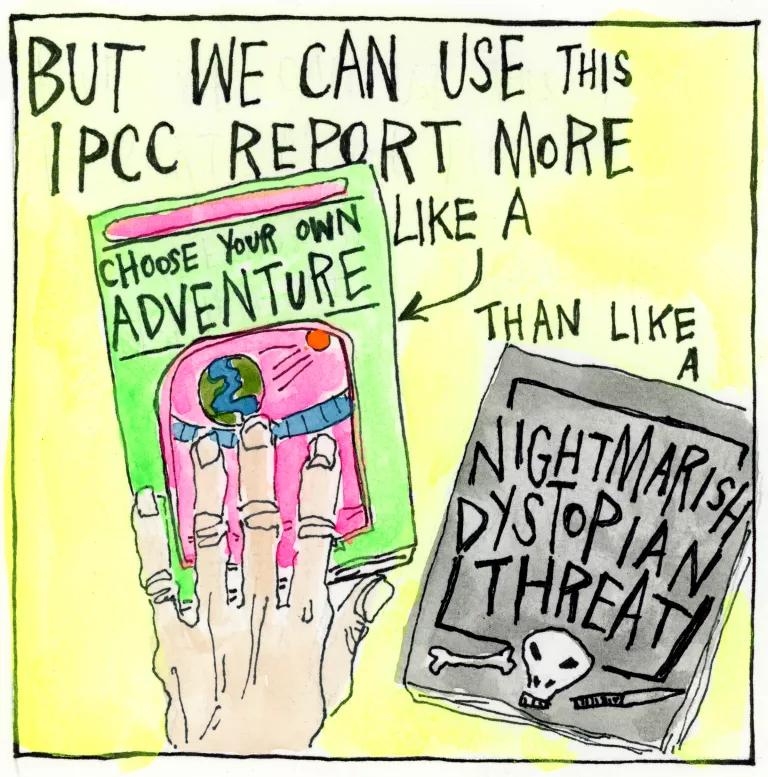 BUT WE CAN USE THIS
IPCC REPORT MORE
LIKE A
CHOOSE YOUR OWN
ADVENTURE
THAN LIKE
A
NIGHTMARISH
DYSTOPIAN
THREAT